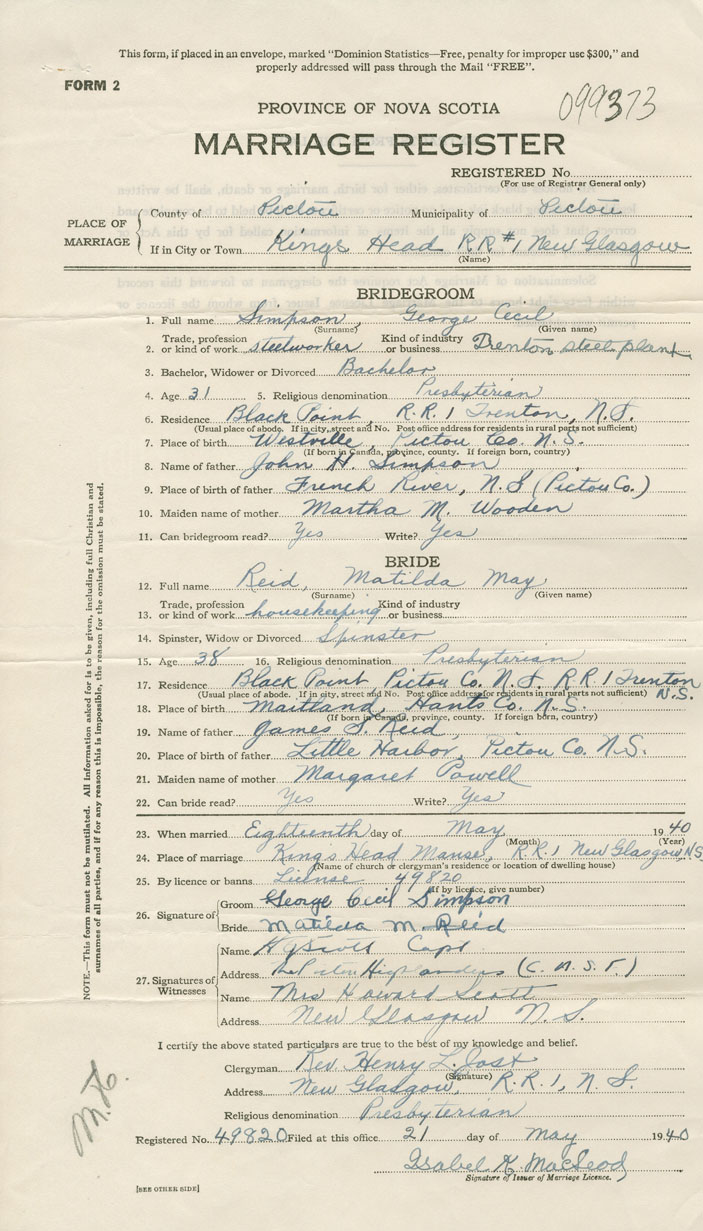 This form, if placed in an envelope, marked "Dominion Statistics—Free, penalty for improper use $300," and
properly addressed will pass through the Mail "FREE".
FORM 2
099373
PROVINCE OF NOVA SCOTIA
MARRIAGE REGISTER
REGISTERED No.
(For use of Registrar General only)
PLACE OF MARRIAGE
County of Pictou Municipality of Pictou
If in City or Town Kings Head RR #1 New Glasgow
(Name)
BRIDEGROOM
1. Full name Simpson, George Cecil
(Surname) (Given name)
2. Trade, profession or kind of work steelworker Kind of industry or business Trenton steel plant
3. Bachelor, Widower or Divorced Bachelor
4. Age 31 5. Religious denomination Presbyterian
6. Residence Black Point, R.R. 1 Trenton, N.S.
(Usual place of abode. If in city, street and No. Post office address for residents in rural parts not sufficient)
7. Place of birth Westville, Pictou Co. N.S.
(If born in Canada, province, county. If foreign born, country)
8. Name of father John H. Simpson
9. Place of birth of father French River, N.S (Pictou Co.)
10. Maiden name of mother Martha M. Wooden
11. Can bridegroom read? Yes Write? Yes
BRIDE
12. Full name Reid, Matilda May
(Surname) (Given name)
13. Trade, profession or kind of work housekeeping Kind of industry or business
14. Spinster, Widow or Divorced Spinster
15. Age 38 16. Religious denomination Presbyterian
17. Residence Black Point Pictou Co N.S. R.R 1 Trenton N.S.
(Usual place of abode. If in city, street and No. Post office address for residents in rural parts not sufficient)
18. Place of birth Maitland, Hants Co. N.S.
(If born in Canada, province, county. If foreign born, country)
19. Name of father James S. Reid,
20. Place of birth of father Little Harbor, Pictou Co. N.S.
21. Maiden name of mother Margaret Powell
22. Can bride read? Yes Write? Yes
23. When married Eighteenth day of May 1940
(Month) (Year)
24. Place of marriage King's Head Manse, R.R. 1 New Glasgow N.S.
(Name of church or clergyman's residence or location of dwelling house)
25. By licence or banns License 49820
(If by licence, give number)
26. Signature of
Groom George Cecil Simpson
Bride Matilda M. Reid
27. Signatures of Witnesses
Name Scott Capt
Address Highlanders (C.A.S.F.)
Name Mrs Howard Scott
Address New Glasgow N.S.
I certify the above stated particulars are true to the best of my knowledge and belief.
Clergyman Rev. Henry L. Jost
(Signature)
Address New Glasgow, R.R. 1, N.S.
Religious denomination Presbyterian
Registered No. 49820 Filed at this office 21 day of May 1940
Isabel K. MacLeod
Signature of Issuer of Marriage Licence.
[SEE OTHER SIDE]
NOTE.—This form must not be mutilated. All information asked for is to be given, including full Christian and
surnames of all parties, and if for any reason this is impossible, the reason for the omission must be stated.